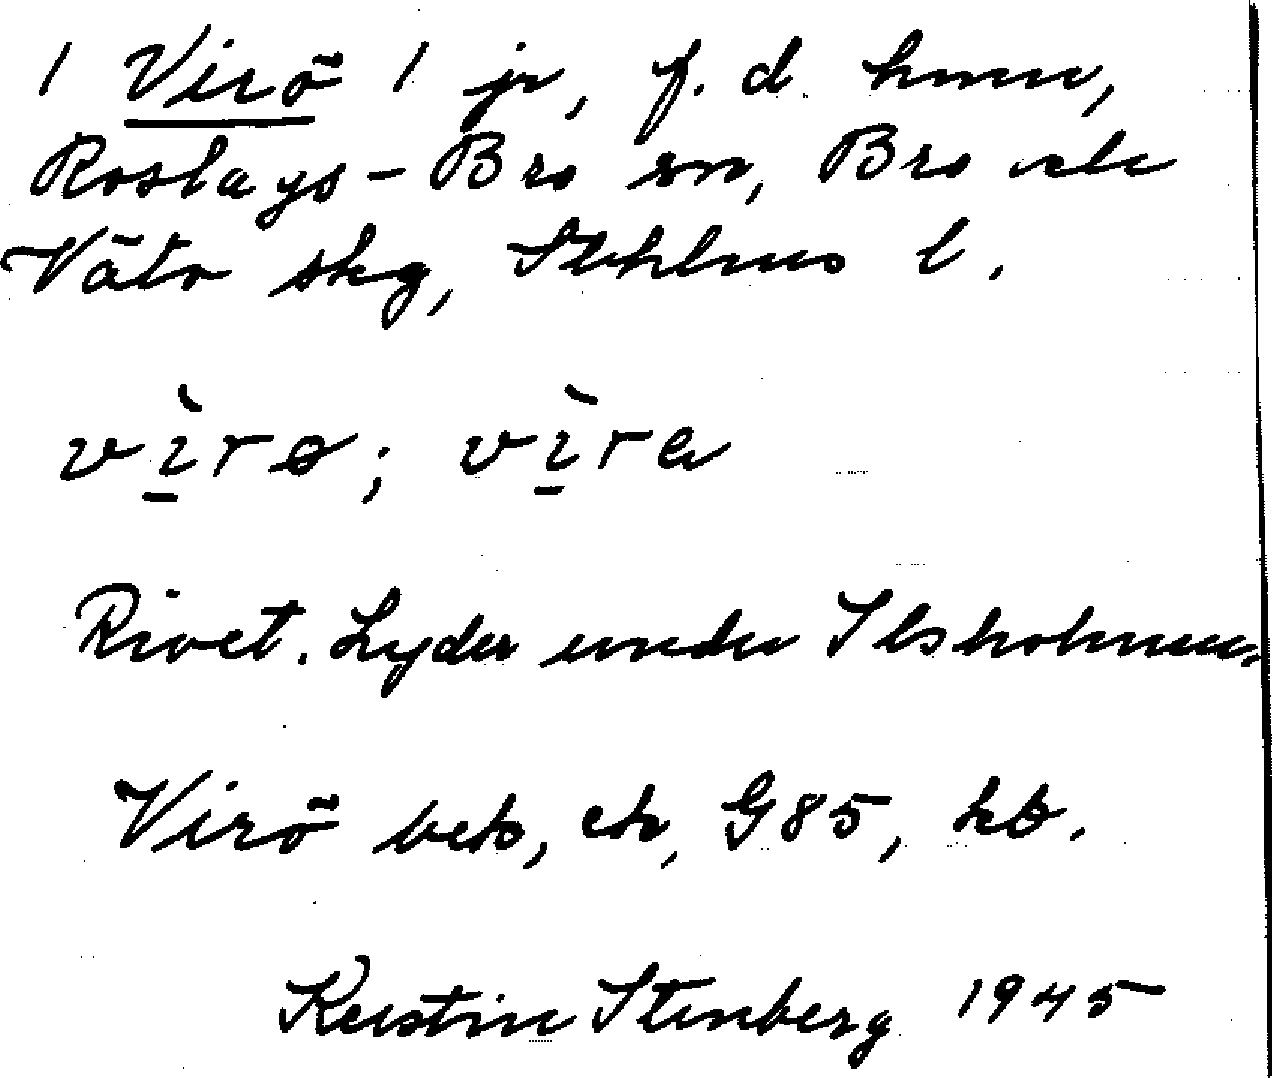 / Virö / jr, f. d. hmn,
Roslags-Bro sn, Bro och
Vätö skg, Sthlms l.
vìrø; vìra
Rivet. Lyder under Ilsholmen.
Virö beb, ek, G85, kb.
Kerstin Stenberg 1945